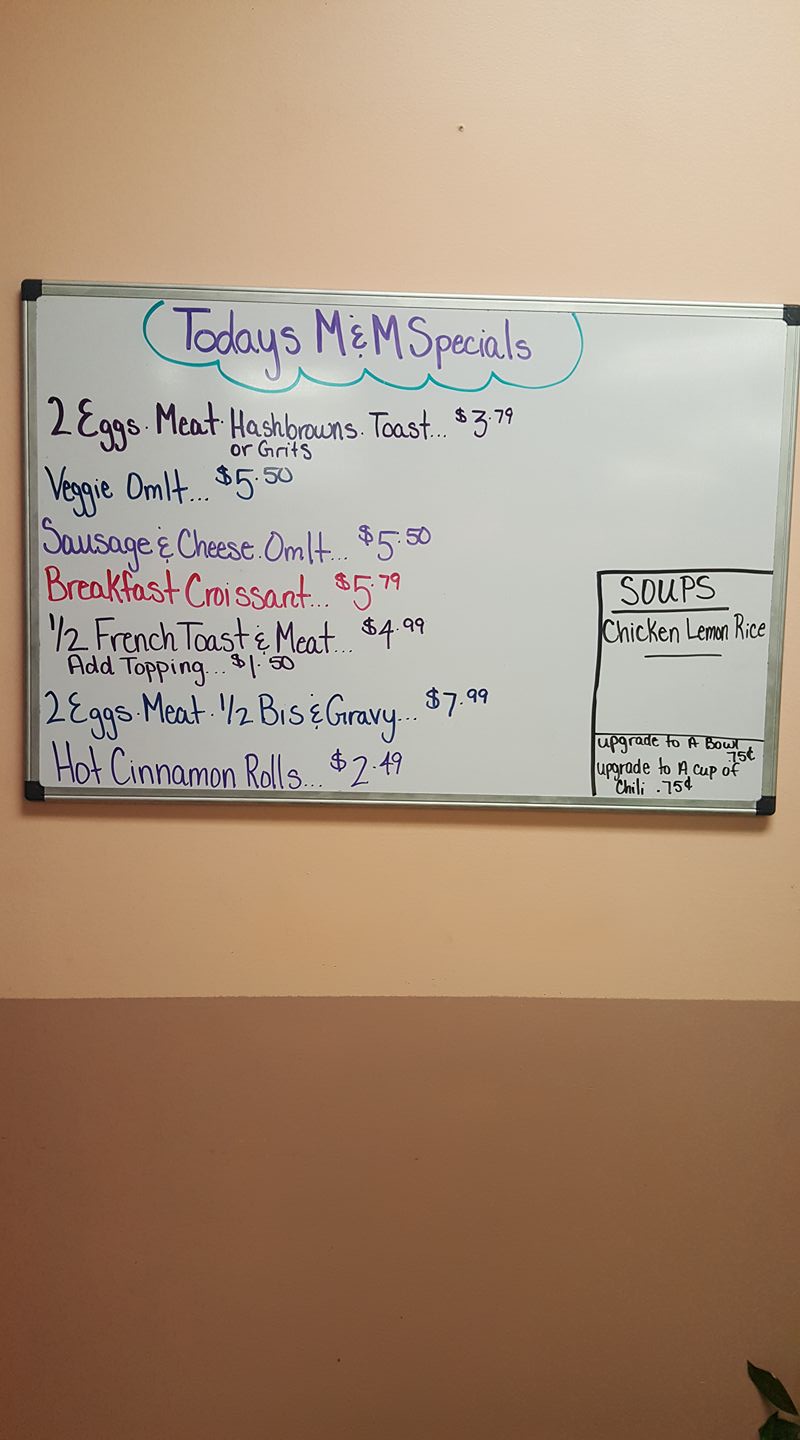 Todays M & M Specials
2 Eggs. Meat. Hashbrowns. Toast... $3.79
or Grits
Veggie Omlt... $5.50
Sausage & Cheese. Omlt... $5.50
Breakfast Croissant... $5.79
1/2 French Toast & Meat... $4.99
Add Topping... $1.50
2 Eggs. Meat. 1/2 Bis & Gravy... $7.99
Hot Cinnamon Rolls... $2.49
SOUPS
Chicken Lemon Rice
upgrade to A Bowl
.75¢
upgrade to A cup of
Chili .75¢